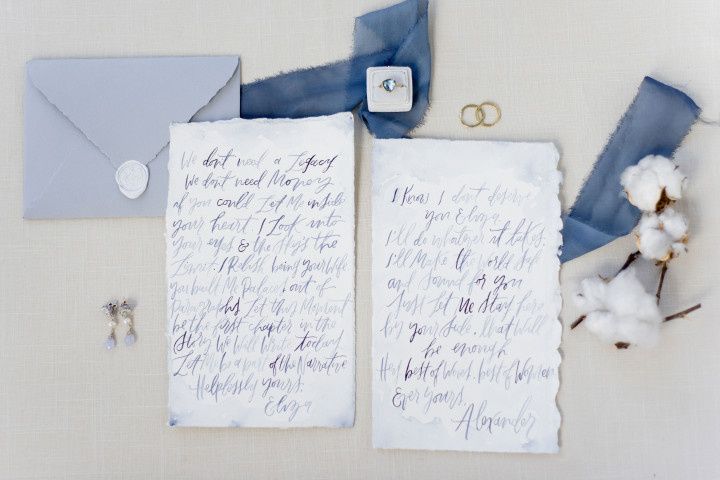 We dont need a Legacy
We dont need Money
if you could Let Me inside
your heart I Look into
your eyes & the Sky's the
Limit. I Relish being your Wife
You built Me Palaces out of
Paragraphs Let this Moment
be the first chapter in the
Story We Will Write today
Let Me be a part of the Narrative
Helplessly yours,
Eliza
I Know I don't deserve
you Eliza
I'll do whatever it takes,
I'll Make the World Safe
and Sound for you
Just Let Me Stay here
by your Side. that Will
be enough
Hey best of Wives, best of Women
Ever yours,
Alexander